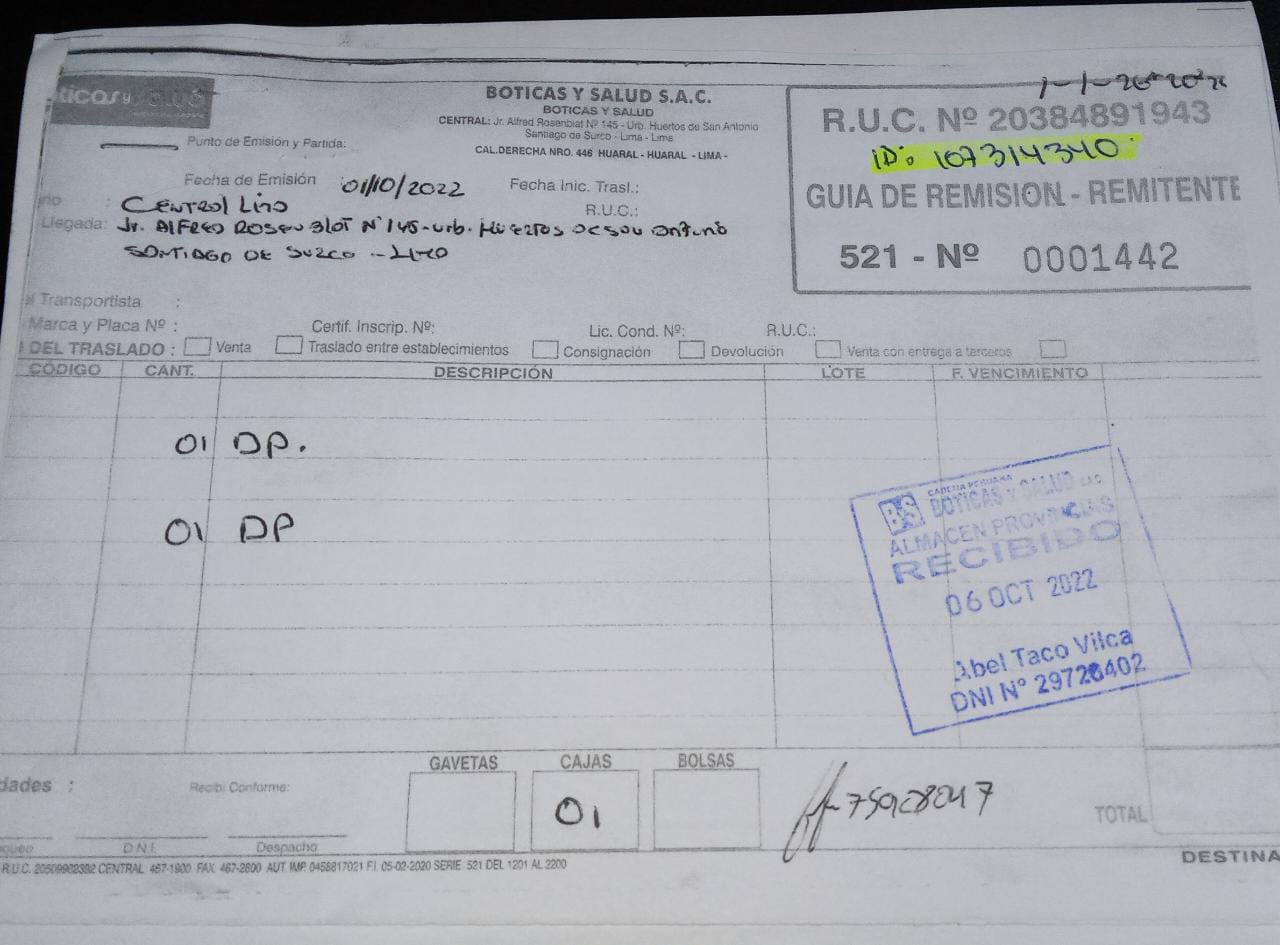 ticas y salud
BOTICAS Y SALUD S.A.C.
BOTICAS Y SALUD
CENTRAL: Jr. Alfred Rosenblat Nº 145 - Urb. Huertos de San Antonio
Santiago de Surco - Lima - Lima
CAL.DERECHA NRO. 446 HUARAL - HUARAL - LIMA -
R.U.C. Nº 20384891943
ID: 107314340
GUIA DE REMISION - REMITENTE
521 - Nº 0001442
Punto de Emisión y Partida:
Fecha de Emisión 01/10/2022 Fecha Inic. Trasl.:
rio : Central Lima R.U.C.:
Llegada: Jr. ALFRED ROSENBLAT Nº 145 - Urb. Huertos de San Antonio
SANTIAGO DE SURCO - LIMA
Transportista :
Marca y Placa Nº : Certif. Inscrip. Nº: Lic. Cond. Nº: R.U.C.:
DEL TRASLADO : Venta Traslado entre establecimientos Consignación Devolución Venta con entrega a terceros
CÓDIGO CANT. DESCRIPCIÓN LOTE F. VENCIMIENTO
01 DP.
01 DP
BS CADENA PERUANA
BOTICAS Y SALUD S.A.C.
ALMACEN PROVINCIAS
RECIBIDO
06 OCT 2022
Abel Taco Vilca
DNI Nº
GAVETAS CAJAS BOLSAS
dades : Recibi Conforme:
01
TOTAL
queo D.N.I. Despacho
DESTINA
CENTRAL 467-1900 FAX 467-2600 AUT. IMP. 0456817021 F.I. 05-02-2020 SERIE 521 DEL 1201 AL 2200